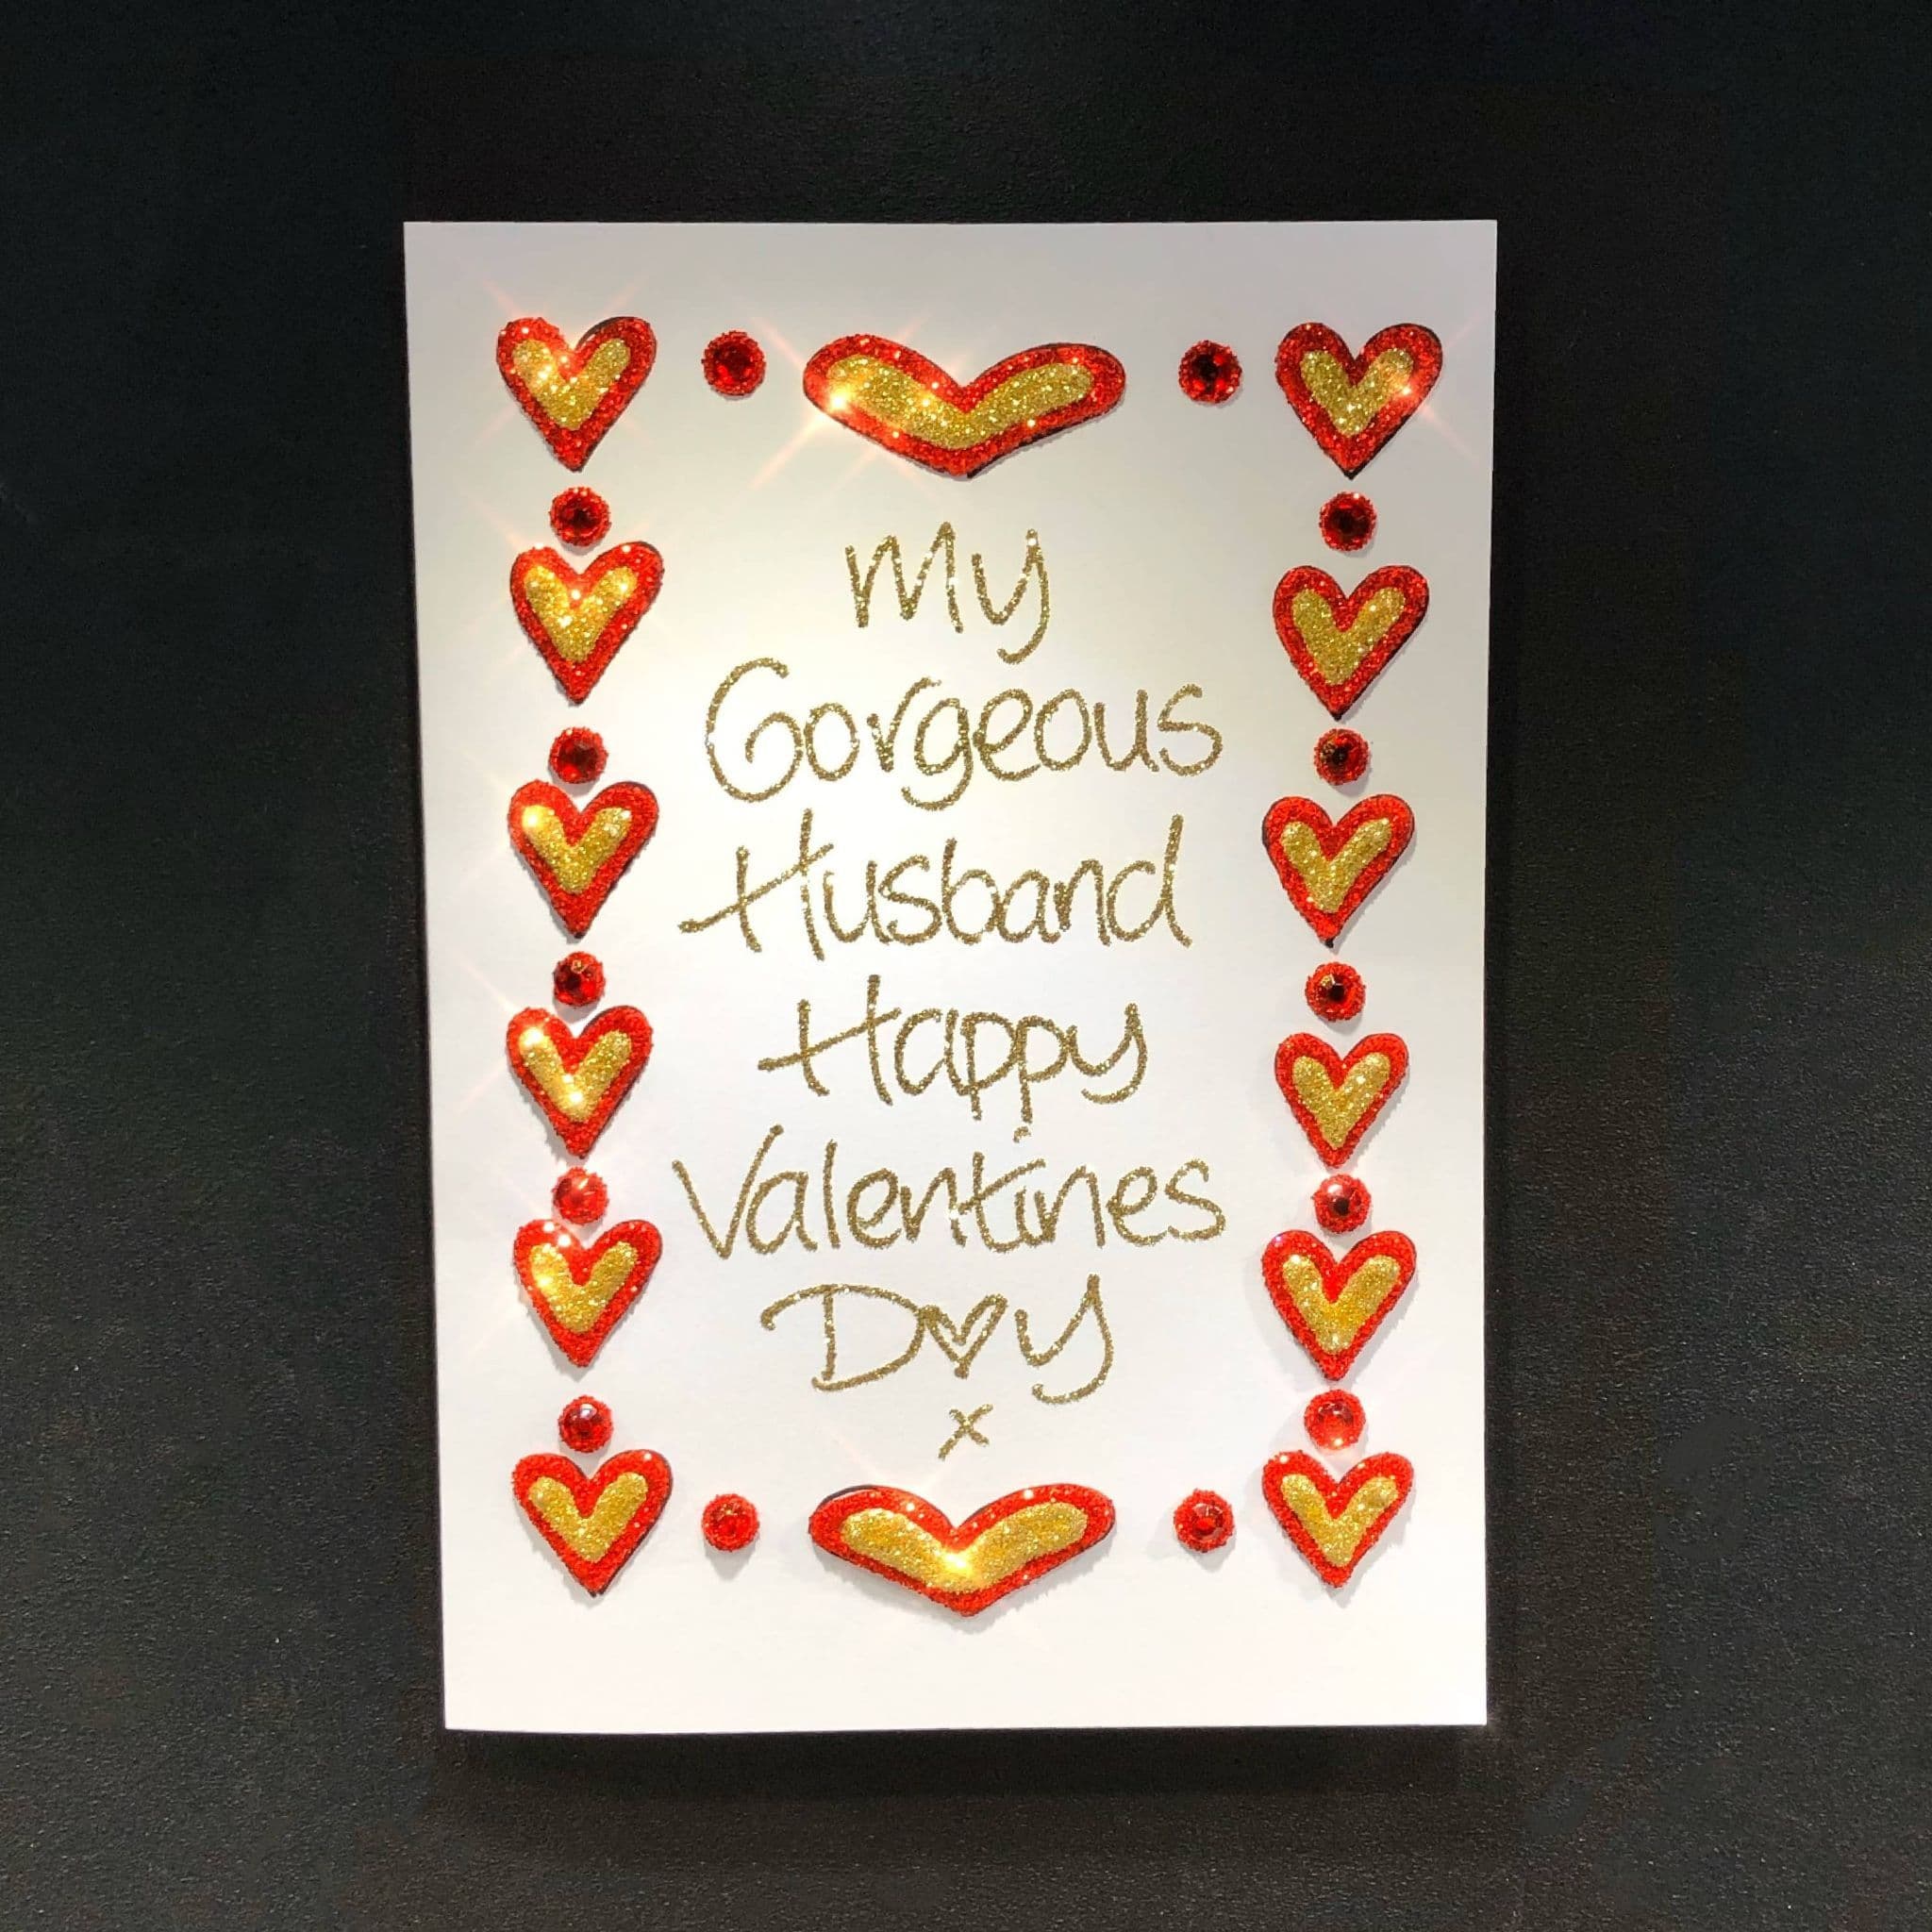 My
Gorgeous
Husband
Happy
Valentines
D♥y
x